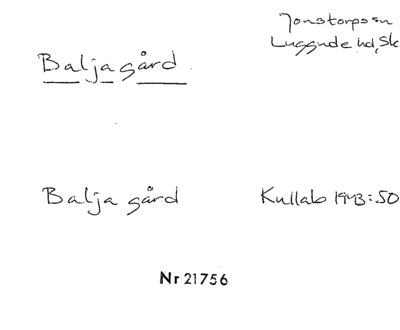 Jonstorps sn
Luggude hd, Sk
Baljagård
Balja gård
Kullab 1943:50
Nr 21756